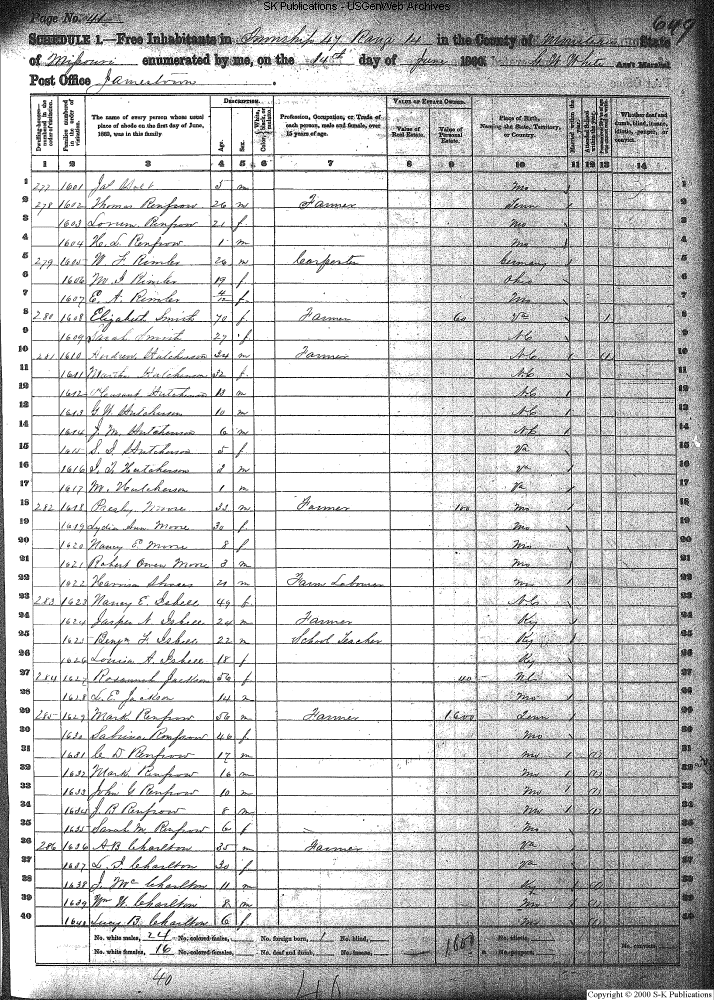 SK Publications - USGenWeb Archives
Page No. 649
SCHEDULE 1.—Free Inhabitants in Township 47 Rang 14 in the County of State
of Missouri enumerated by me, on the 14th day of June 1860. White Ass't Marshal
Post Office Jamestown.
DESCRIPTION. VALUE OF ESTATE OWNED.
Dwelling-houses—numbered in the order of visitation. Families numbered in the order of visitation. The name of every person whose usual place of abode on the first day of June, 1860, was in this family. Age. Sex. Color, White, black, or mulatto. Profession, Occupation, or Trade of each person, male and female, over 15 years of age. Value of Real Estate. Value of Personal Estate. Place of Birth, Naming the State, Territory, or Country. Married within the year. Attended School within the year. Whether deaf and dumb, blind, insane, idiotic, pauper, or convict.
1 2 3 4 5 6 7 8 9 10 11 12 13 14
1 277 1601 5 m Mo 1
2 278 1602 Thomas Renfrow 26 m Farmer Tenn 2
3 1603 Renfrow 21 f Mo 3
4 1604 H. L. Renfrow 1 m Mo 4
5 279 1605 W. F. Rimler 26 m Carpenter Germany 5
6 1606 Rimler 19 f Ohio 6
7 1607 E. A. Rimler 4/12 f Mo 7
8 280 1608 Elizabeth Smith 70 f Farmer 60 Va 1 8
9 1609 Sarah Smith 27 f N.C 9
10 281 1610 Andrew Hutcherson 34 m Farmer N.C 10
11 1611 Martha Hutcherson 32 f N.C 11
12 1612 Hutcherson 13 m N.C 12
13 1613 G. W. Hutcherson 10 m N.C 13
14 1614 J. M. Hutcherson 6 m N.C 14
15 1615 S. J. Hutcherson 5 f Va 15
16 1616 Hutcherson 2 m Va 16
17 1617 M. Hutcherson 1 m Va 17
18 282 1618 Presly Moore 33 m Farmer 100 Mo 18
19 1619 Lydia Ann Moore 30 f Mo 19
20 1620 Nancy E. Moore 8 f Mo 20
21 1621 Robert Owen Moore 3 m Mo 21
22 1622 Harrison 21 m Farm Laborer Mo 22
23 283 1623 Nancy E. Isbell 49 f N.C 23
24 1624 Jasper N Isbell 24 m Farmer Ky 24
25 1625 Benjn F. Isbell 22 m School Teacher Ky 25
26 1626 Louisa A. Isbell 18 f Ky 26
27 284 1627 Rosannah Jackson 56 f 40 N.C 27
28 1628 L. E. Jackson 14 Mo 28
29 285 1629 Mark Renfrow 56 m Farmer 1600 Tenn 29
30 1630 Sabrina Renfrow 46 f Mo 30
31 1631 C. D Renfrow 17 m Mo 1 31
32 1632 Mark Renfrow 16 m Mo 1 32
33 1633 John G Renfrow 10 m Mo 1 33
34 1634 J. B Renfrow 8 m Mo 1 34
35 1635 Sarah M. Renfrow 6 f Mo 35
36 286 1636 A. B. Charlton 35 m Farmer Va 36
37 1637 L. J. Charlton 30 f Va 37
38 1638 J. Mc Charlton 11 m Ky 1 38
39 1639 Wm H. Charlton 8 m Mo 1 39
40 1640 Lucy B. Charlton 6 f Mo 1 40
No. white males, 24 No. colored males, No. foreign born, 1 No. blind, 1800 No. idiotic,
No. white females, 16 No. colored females, No. deaf and dumb, No. insane, No. paupers, No. convicts,
40
Copyright © 2000 S-K Publications